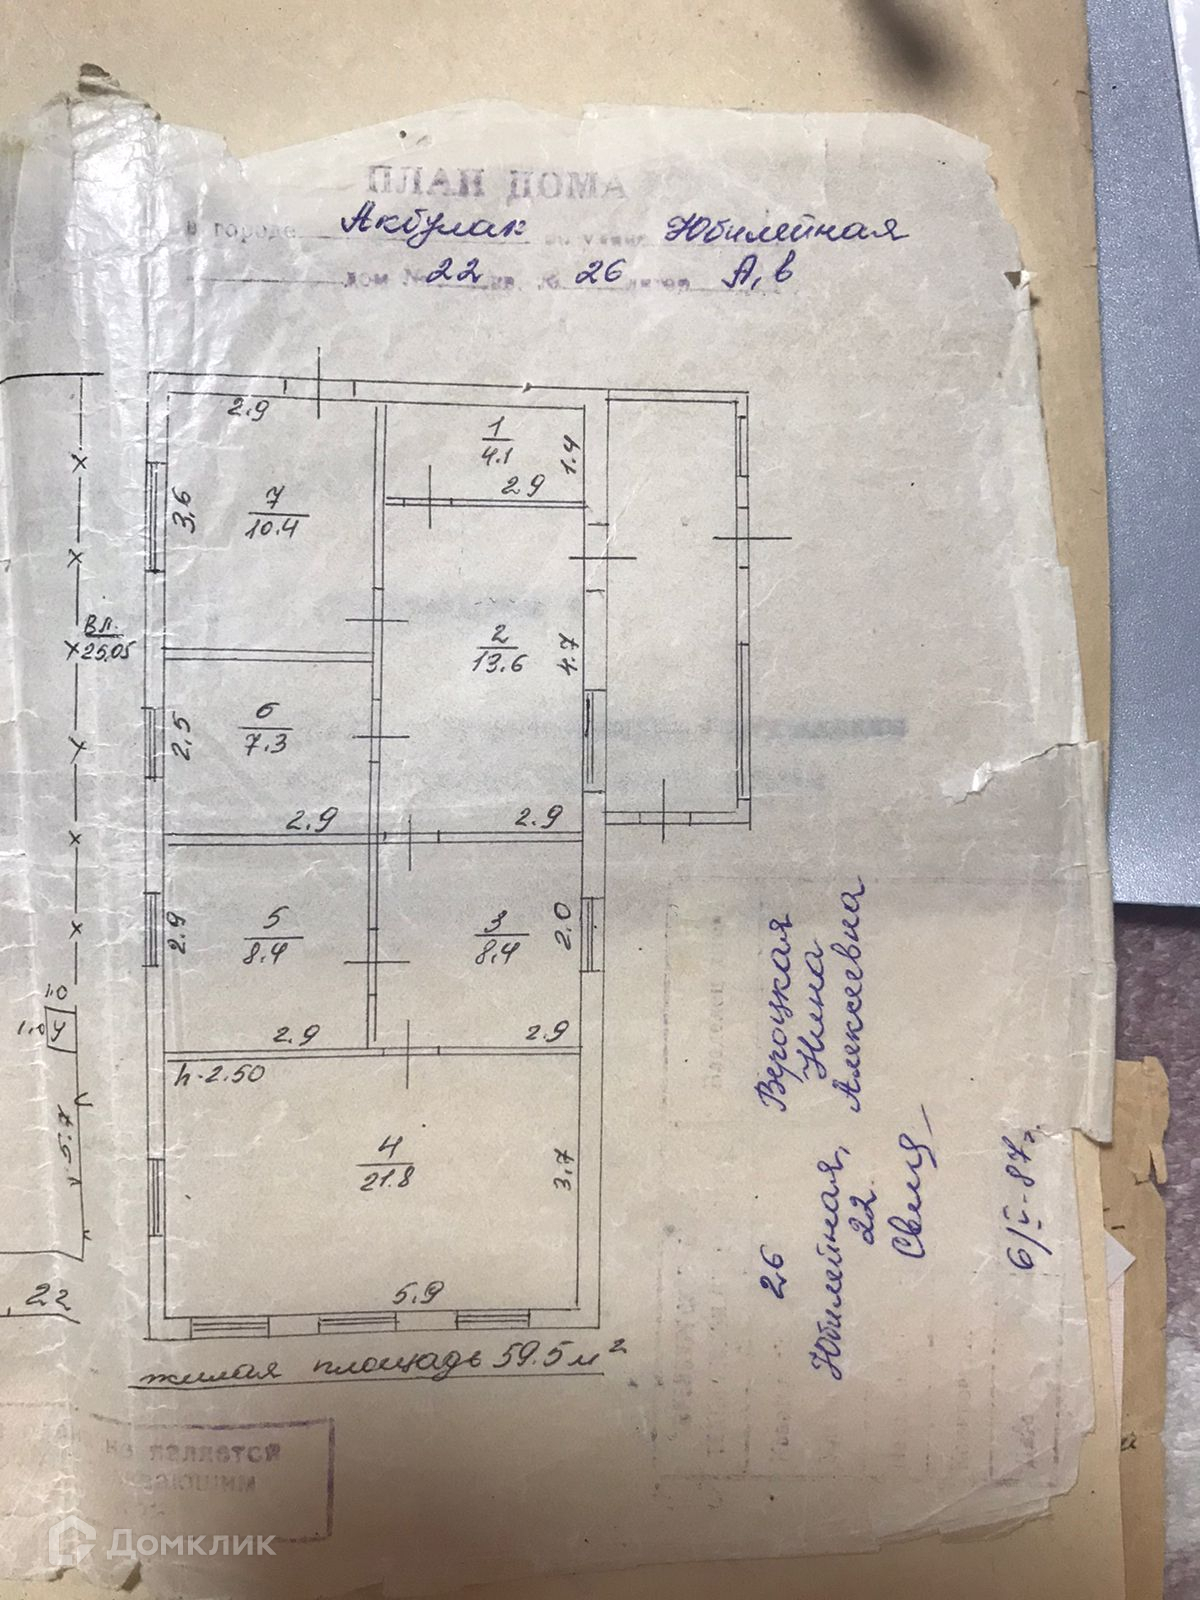 ПЛАН ДОМА
в городе Акбулак по улице Юбилейная
дом № 22 кв. № 26 литер А, в
2.9
1
4.1
1.4
2.9
7
10.4
3.6
Вл.
25.05
2
13.6
4.7
6
7.3
2.5
2.9
2.9
5
8.4
2.9
3
8.4
2.0
1.0
1.0
У
2.9
2.9
h-2.50
5.7
4
21.8
3.7
5.9
22
жилая площадь 59.5 м²
не является
26
Юбилейная,
22
Нина
Алексеевна
6/V-87г.
Домклик